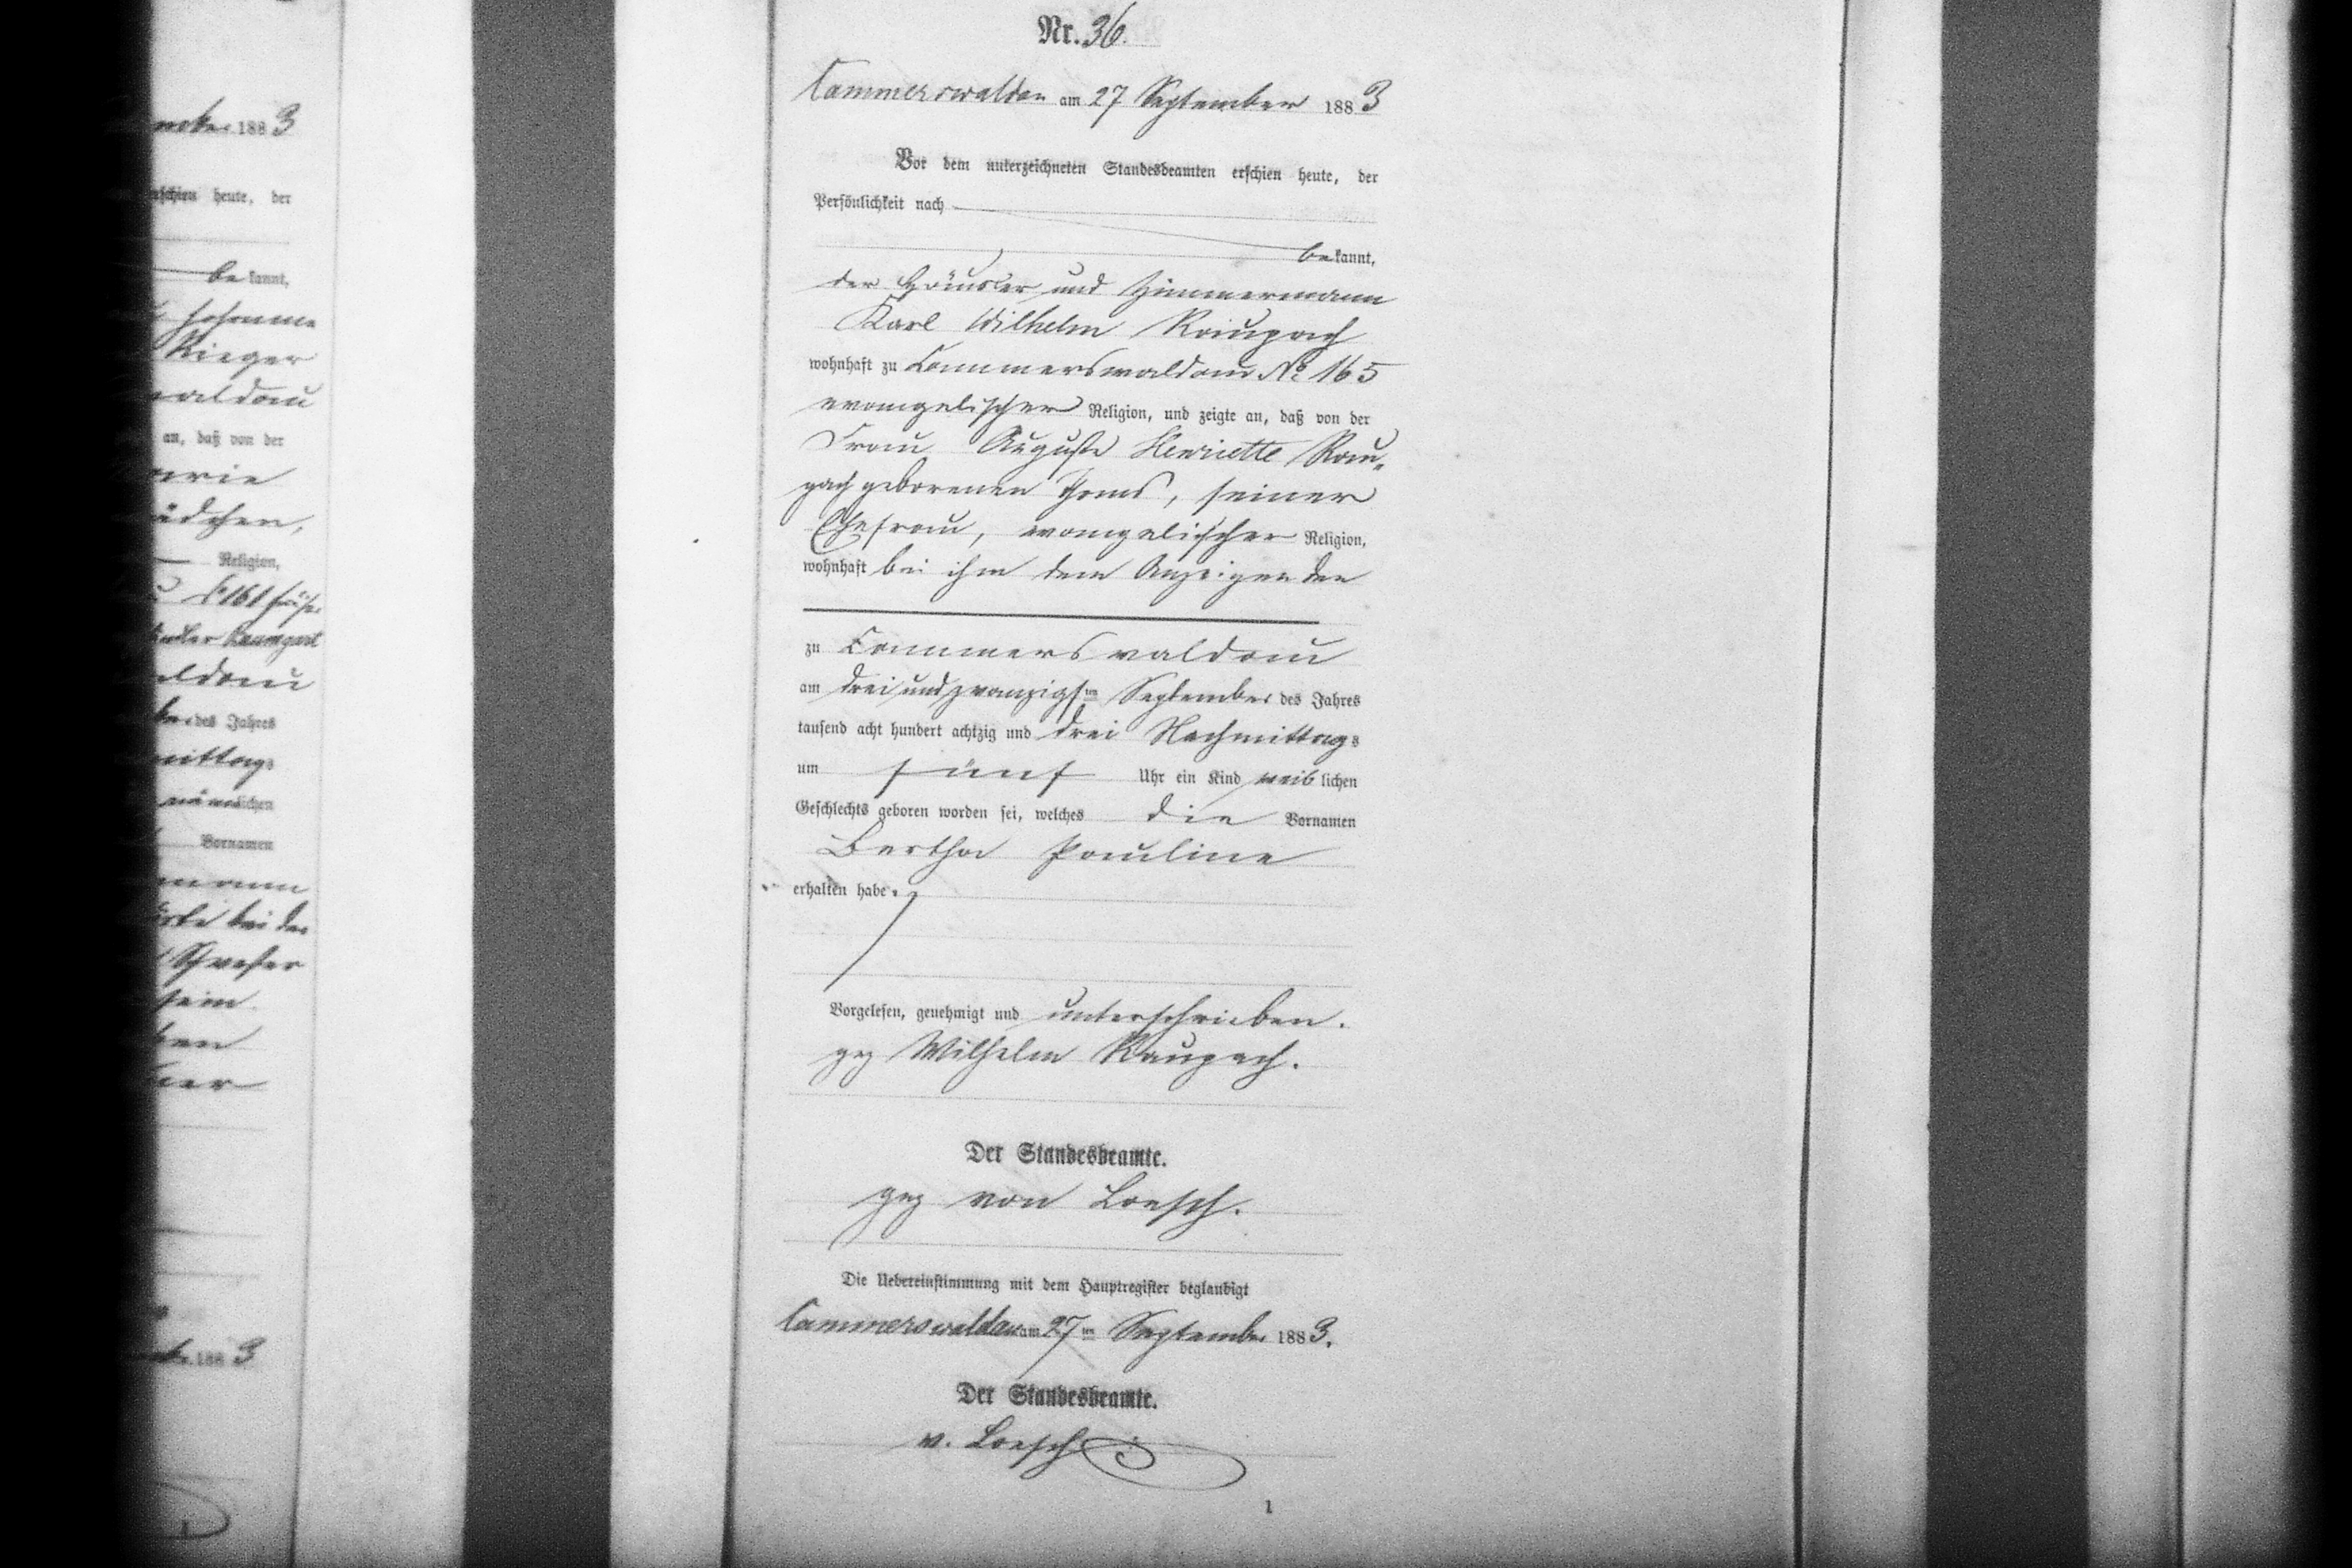 Nr. 36.
Cammerswaldau am 27 September 1883
Vor dem unterzeichneten Standesbeamten erschien heute, der
Persönlichkeit nach
bekannt,
der Häusler und Zimmermann
Karl Wilhelm Raupach
wohnhaft zu Cammerswaldau No 165
evangelischer Religion, und zeigte an, daß von der
Frau Auguste Henriette Rau„
pach geborenen Thoms, seiner
Ehefrau, evangelischer Religion,
wohnhaft bei ihm dem Anzeigenden
zu Cammerswaldau
am dreiundzwanzigsten September des Jahres
tausend acht hundert achtzig und drei Nachmittags
um fünf Uhr ein Kind weiblichen
Geschlechts geboren worden sei, welches die Vornamen
Bertha Pauline
erhalten habe.
Vorgelesen, genehmigt und unterschrieben.
gez Wilhelm Raupach.
Der Standesbeamte.
gez von Loesch.
Die Uebereinstimmung mit dem Hauptregister beglaubigt
Cammerswaldau am 27ten September 1883.
Der Standesbeamte.
v. Loesch
1
1883
erschien heute, der
bekannt,
Rieger
waldau
an, daß von der
Religion,
des Jahres
Vornamen
bei der
sein
1883